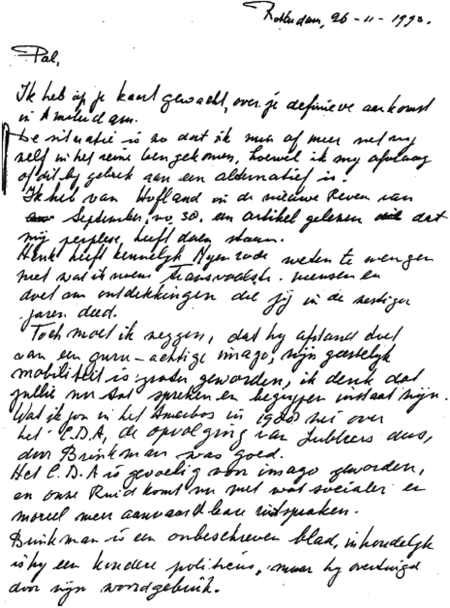 Rotterdam, 26-11-1990.
Pal,
Ik heb op je kaart gewacht, over je definieve aankomst
in Amsterdam.
De situatie is zo dat ik min of meer met my
zelf in het reine ben gekomen, hoewel ik my afvraag
of dit by gebrek aan een alternatief is.
Ik heb van Hofland in de nieuwe Reven van
September, no. 50. een artikel gelezen dat
my perplex heeft doen staan.
Henk heeft kennelijk Nyenrode weten te mengen
met wat ik noem Transvaalse mensen en
doet aan ontdekkingen die jij in de zestiger
jaren deed.
Toch moet ik zeggen, dat hy afstand doet
van een guru-achtige imago, zijn geestelijk
mobiliteit is groter geworden, ik denk dat
jullie nu tot spreken en begrypen instaat zijn.
Wat ik jou in het in 1980 zei over
het C.D.A, de opvolging van Lubbers dus,
door Brinkman was goed.
Het C.D.A is gevoelig voor imago geworden,
en onze Ruud komt nu met wat socialer en
moreel meer aanvaardbare uitspraken.
Brinkman is een onbeschreven blad, inhoudelijk
is hy een politicus, maar hy overtuigd
door zijn woordgebruik.